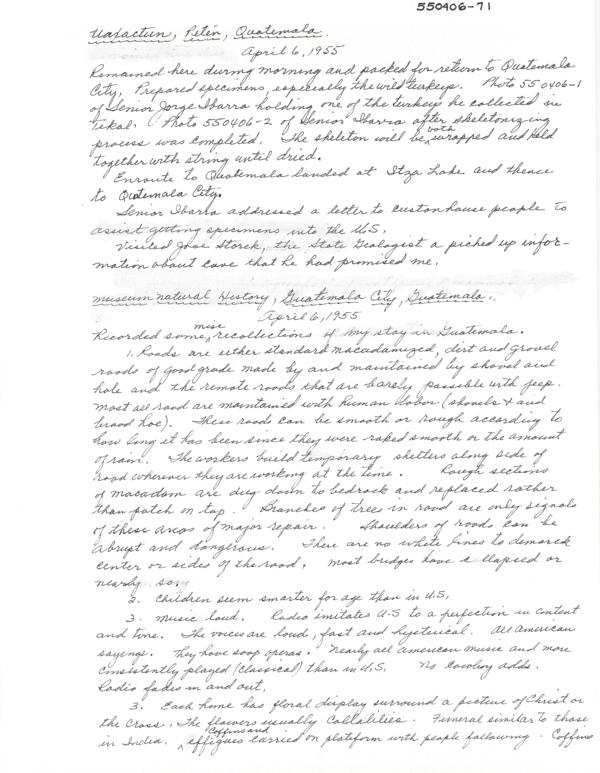 550406-71
Uaxactun, Petén, Guatemala.
April 6, 1955
Remained here during morning and packed for return to Guatemala
City. Prepared specimens, especially the wild turkeys. Photo 550406-1
of Senior Jorge Ibarra holding one of the turkeys he collected in
Tikal. Photo 550406-2 of Senior Ibarra after skeletonizing
process was completed. The skeleton will be both wrapped and held
together with string until dried.
Enroute to Guatemala landed at Itza Lake and thence
to Guatemala City.
Senior Ibarra addressed a letter to custom house people to
assist getting specimens into the U.S.
Visited Jose Storek, the State Geologist a picked up infor-
mation about cave that he had promised me.
museum natural History, Guatemala City, Guatemala.
April 6, 1955
Recorded some misc recollections of my stay in Guatemala.
1. Roads are either standard macadamized, dirt and gravel
roads of good grade made by and maintained by shovel and
hole and the remote roads that are barely passible with jeep.
most all road are maintained with human labor (shovels + and
broad hoe). These roads can be smooth or rough according to
how long it has been since they were raked smooth or the amount
of rain. The workers build temporary shelters along side of
road wherever they are working at the time. Rough sections
of macadam are dug down to bedrock and replaced rather
than patch on top. Branches of trees in road are only signals
of these areas of major repair. Shoulders of roads can be
abrupt and dangerous. There are no white lines to demarck
center or sides of the road. most bridges have collapsed or
nearly so.
2. Children seem smarter for age than in U.S.
3. music loud. Radio imitates U.S to a perfection in content
and tone. The voices are loud, fast and hysterical. All American
sayings. They have soap operas. Nearly all American music and more
consistently played (classical) than in U.S. No Cowboy adds.
Radio fades in and out.
3. Each home has floral display surround a picture of Christ or
the Cross. The flowers usually Callalilies. Funeral similar to those
in India. Coffins and effigies carried on plateform with people following. Coffins